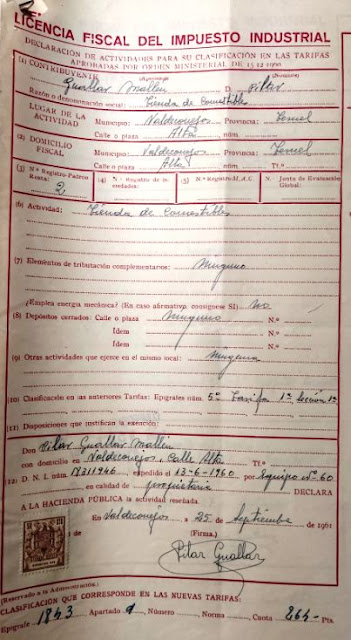 LICENCIA FISCAL DEL IMPUESTO INDUSTRIAL
DECLARACIÓN DE ACTIVIDADES PARA SU CLASIFICACIÓN EN LAS TARIFAS
APROBADAS POR ORDEN MINISTERIAL DE 15-12-1960
(1) CONTRIBUYENTE
Guallar Mallen D. Pilar
Razón o denominación social: Tienda de Comestibles
LUGAR DE LA ACTIVIDAD Municipio: Valdeconejos Teruel
Calle o plaza Alta núm.
(2) DOMICILIO FISCAL Municipio: Valdeconejos Teruel
Calle o plaza Alta Tf.º
(3) N.º Registro-Padrón Renta: 2 (4) N.º Registro de Sociedades: (5) N.º Registro M.A.C. N. Junta de Evaluación Global:
(6) Actividad: Tienda de Comestibles
(7) Elementos de tributación complementarios: Ninguno
¿Emplea energía mecánica? (En caso afirmativo, consígnese SI) No
(8) Depósitos cerrados: Calle o plaza Ninguno N.º
Idem N.º
Idem N.º
(9) Otras actividades que ejerce en el mismo local: Ninguna
(10) Clasificación en las anteriores Tarifas: Epígrafes núms. 5º Tarifa 1ª, Sección 1ª
(11) Disposiciones que justifican la exención:
Don Pilar Guallar Mallen
con domicilio en Valdeconejos, Calle Alta Tf.º
(12) D. N. I. núm. 17311946, expedido el 13-6-1960 por Equipo Nº 60
en calidad de propietaria DECLARA
A LA HACIENDA PÚBLICA la actividad reseñada
En Valdeconejos a 25 de Septiembre de 1961
(Firma.)
Pilar Guallar
(Reservado a la Administración.)
CLASIFICACIÓN QUE CORRESPONDE EN LAS NUEVAS TARIFAS:
Epígrafe 1843 Apartado a Número Norma Cuota 264 Pts.